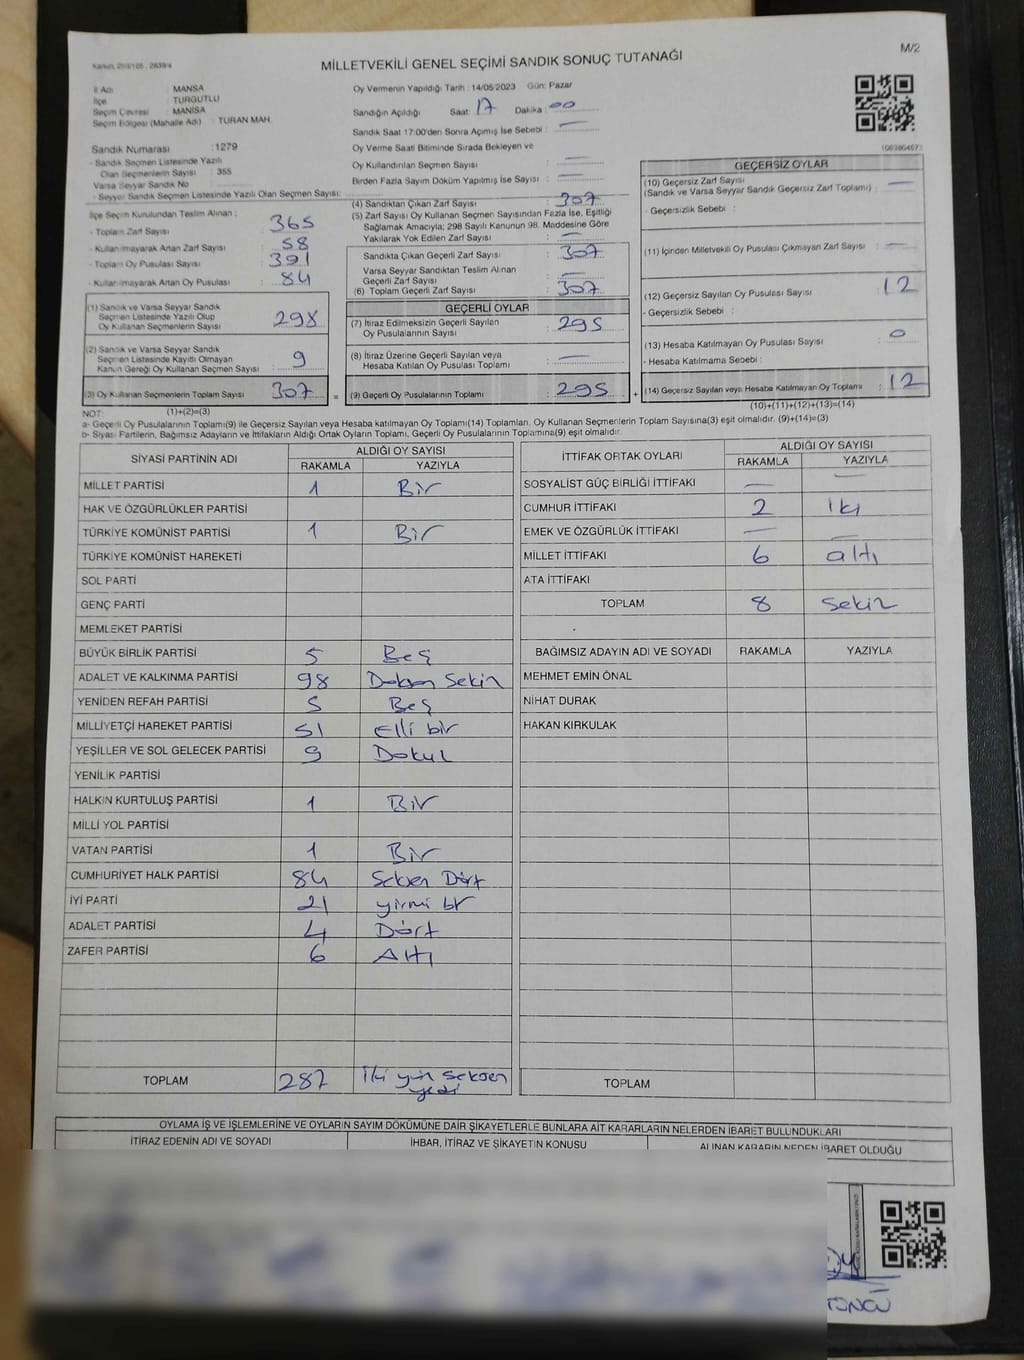 M/2
MİLLETVEKİLİ GENEL SEÇİMİ SANDIK SONUÇ TUTANAĞI
İl Adı : MANİSA
İlçe : TURGUTLU
Seçim Çevresi : MANİSA
Seçim Bölgesi (Mahalle Adı) : TURAN MAH.
Sandık Numarası :1279
- Sandık Seçmen Listesinde Yazılı
Olan Seçmenlerin Sayısı : 355
Varsa Seyyar Sandık No
- Seyyar Sandık Seçmen Listesinde Yazılı Olan Seçmen Sayısı:
İlçe Seçim Kurulundan Teslim Alınan :
- Toplam Zarf Sayısı : 365
- Kullanılmayarak Artan Zarf Sayısı : 58
- Toplam Oy Pusulası Sayısı : 391
- Kullanılmayarak Artan Oy Pusulası : 84
(1) Sandık ve Varsa Seyyar Sandık
Seçmen Listesinde Yazılı Olup
Oy Kullanan Seçmenlerin Sayısı : 298
(2) Sandık ve Varsa Seyyar Sandık
Seçmen Listesinde Kayıtlı Olmayan
Kanun Gereği Oy Kullanan Seçmen Sayısı : 9
(3) Oy Kullanan Seçmenlerin Toplam Sayısı : 307
Oy Vermenin Yapıldığı Tarih : 14/05/2023 Gün: Pazar
Sandığın Açıldığı Saat: 17 Dakika : 00
Sandık Saat 17:00'den Sonra Açımış İse Sebebi : —
Oy Verme Saati Bitiminde Sırada Bekleyen ve
Oy Kullandırılan Seçmen Sayısı : —
Birden Fazla Sayım Döküm Yapılmış İse Sayısı : —
(4) Sandıktan Çıkan Zarf Sayısı : 307
(5) Zarf Sayısı Oy Kullanan Seçmen Sayısından Fazla İse, Eşitliği
Sağlamak Amacıyla; 298 Sayılı Kanunun 98. Maddesine Göre
Yakılarak Yok Edilen Zarf Sayısı : —
Sandıkta Çıkan Geçerli Zarf Sayısı : 307
Varsa Seyyar Sandıktan Teslim Alınan
Geçerli Zarf Sayısı : —
(6) Toplam Geçerli Zarf Sayısı : 307
GEÇERLİ OYLAR
(7) İtiraz Edilmeksizin Geçerli Sayılan
Oy Pusulalarının Sayısı : 295
(8) İtiraz Üzerine Geçerli Sayılan veya
Hesaba Katılan Oy Pusulası Toplamı : —
= (9) Geçerli Oy Pusulalarının Toplamı : 295 +
GEÇERSİZ OYLAR
(10) Geçersiz Zarf Sayısı
(Sandık ve Varsa Seyyar Sandık Geçersiz Zarf Toplamı) : —
- Geçersizlik Sebebi :
(11) İçinden Milletvekili Oy Pusulası Çıkmayan Zarf Sayısı : —
(12) Geçersiz Sayılan Oy Pusulası Sayısı : 12
- Geçersizlik Sebebi :
(13) Hesaba Katılmayan Oy Pusulası Sayısı : 0
- Hesaba Katılmama Sebebi :
(14) Geçersiz Sayılan veya Hesaba Katılmayan Oy Toplamı : 12
NOT: (1)+(2)=(3)
(10)+(11)+(12)+(13)=(14)
a- Geçerli Oy Pusulalarının Toplamı(9) ile Geçersiz Sayılan veya Hesaba katılmayan Oy Toplamı(14) Toplamları, Oy Kullanan Seçmenlerin Toplam Sayısına(3) eşit olmalıdır. (9)+(14)=(3)
b- Siyasi Partilerin, Bağımsız Adayların ve İttifakların Aldığı Ortak Oyların Toplamı, Geçerli Oy Pusulalarının Toplamına(9) eşit olmalıdır.
SİYASİ PARTİNİN ADI ALDIĞI OY SAYISI
RAKAMLA YAZIYLA
MİLLET PARTİSİ 1 Bir
HAK VE ÖZGÜRLÜKLER PARTİSİ
TÜRKİYE KOMÜNİST PARTİSİ 1 Bir
TÜRKİYE KOMÜNİST HAREKETİ
SOL PARTİ
GENÇ PARTİ
MEMLEKET PARTİSİ
BÜYÜK BİRLİK PARTİSİ 5 Beş
ADALET VE KALKINMA PARTİSİ 98 Doksan Sekiz
YENİDEN REFAH PARTİSİ 5 Beş
MİLLİYETÇİ HAREKET PARTİSİ 51 Elli bir
YEŞİLLER VE SOL GELECEK PARTİSİ 9 Dokuz
YENİLİK PARTİSİ
HALKIN KURTULUŞ PARTİSİ 1 Bir
MİLLİ YOL PARTİSİ
VATAN PARTİSİ 1 Bir
CUMHURİYET HALK PARTİSİ 84 Seksen Dört
İYİ PARTİ 21 yirmi bir
ADALET PARTİSİ 4 Dört
ZAFER PARTİSİ 6 Altı
TOPLAM 287 İki yüz seksen
yedi
İTTİFAK ORTAK OYLARI ALDIĞI OY SAYISI
RAKAMLA YAZIYLA
SOSYALİST GÜÇ BİRLİĞİ İTTİFAKI — —
CUMHUR İTTİFAKI 2 iki
EMEK VE ÖZGÜRLÜK İTTİFAKI — —
MİLLET İTTİFAKI 6 altı
ATA İTTİFAKI
TOPLAM 8 sekiz
BAĞIMSIZ ADAYIN ADI VE SOYADI RAKAMLA YAZIYLA
MEHMET EMİN ÖNAL
NİHAT DURAK
HAKAN KIRKULAK
TOPLAM
OYLAMA İŞ VE İŞLEMLERİNE VE OYLARIN SAYIM DÖKÜMÜNE DAİR ŞİKAYETLERLE BUNLARA AİT KARARLARIN NELERDEN İBARET BULUNDUKLARI
İTİRAZ EDENİN ADI VE SOYADI İHBAR, İTİRAZ VE ŞİKAYETİN KONUSU ALINAN KARARIN NEDEN İBARET OLDUĞU